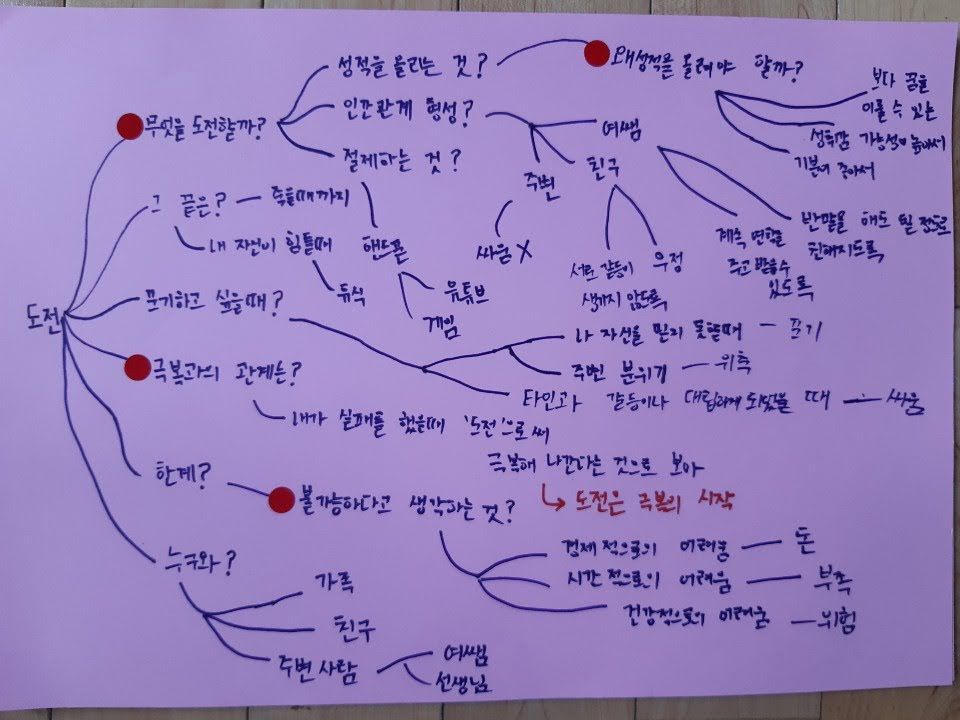 도전
무엇을 도전할까?
성적을 올리는 것?
왜 성적을 올려야 할까?
보다 꿈을
이룰 수 있는
가능성이 높아서
성취감
기분이 좋아서
인간관계 형성?
여쌤
계속 연락을
주고 받을수
있도록
반말을 해도 될 정도로
친해지도록
친구
서로 갈등이
생기지 않도록
우정
주변
싸움 X
절제하는 것?
핸드폰
유튜브
게임
그 끝은?
죽을때까지
내 자신이 힘들때
휴식
포기하고 싶을때?
나 자신을 믿지 못할때 - 포기
주변 분위기 - 위축
타인과 갈등이나 대립하게 되었을 때 - 싸움
극복과의 관계는?
내가 실패를 했을때 '도전'으로써
극복해 나간다는 것으로 보아
↳ 도전은 극복의 시작
한계?
불가능하다고 생각하는 것?
경제적으로의 어려움 - 돈
시간적으로의 어려움 - 부족
건강적으로의 어려움 - 위험
누구와?
가족
친구
주변 사람
여쌤
선생님